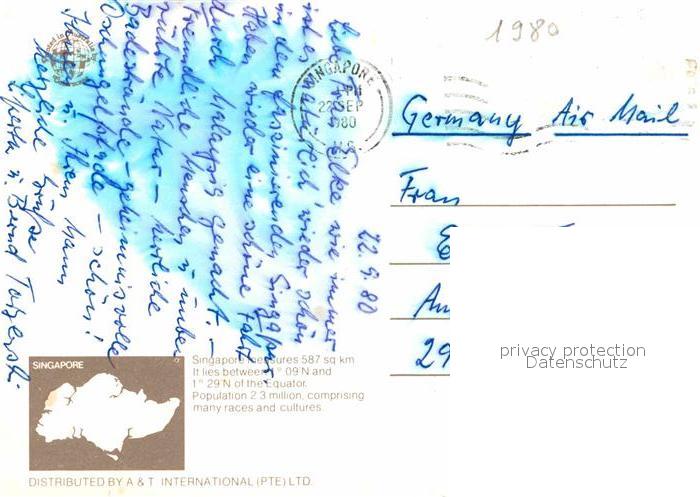 1980
SINGAPORE
22 SEP
1980
Germany Air Mail
Frau
29
privacy protection
Datenschutz
22.9.80
Liebe Frau Elke, wie immer
ist es wieder schön
in dem faszinierenden Singapur
Haben wieder eine schöne Fahrt
durch Malaysia gemacht. –
Freundliche Menschen u. unbe
rührte Natur – herrliche
Badestrände – geheimnisvolle
Dschungelpfade – schön!
Ihnen u. Ihrem Mann
herzliche Grüße
u. Bernd
SINGAPORE
Singapore measures 587 sq km
It lies between 1° 09'N and
1° 29'N of the Equator.
Population 2.3 million, comprising
many races and cultures.
DISTRIBUTED BY A & T INTERNATIONAL (PTE) LTD.